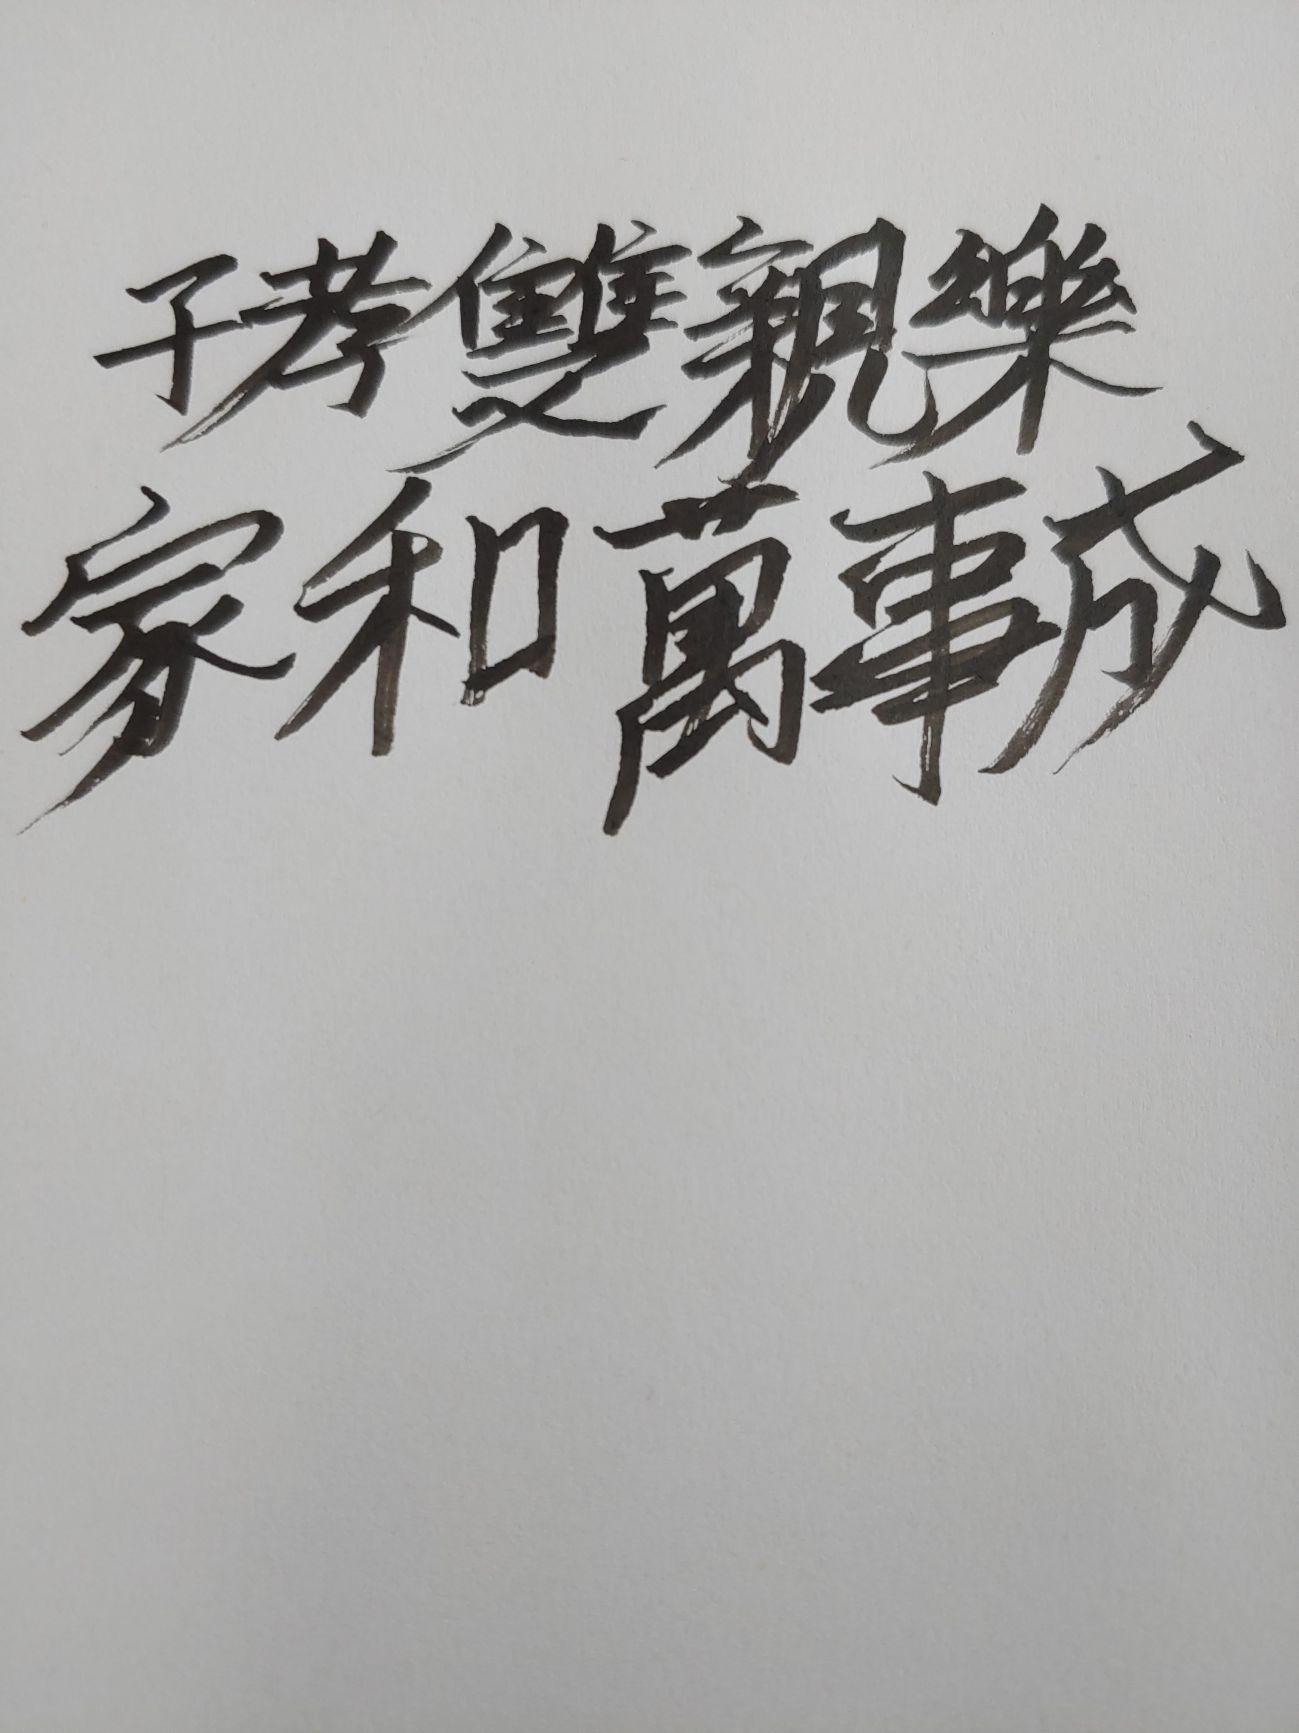 子孝雙親樂
家和萬事成